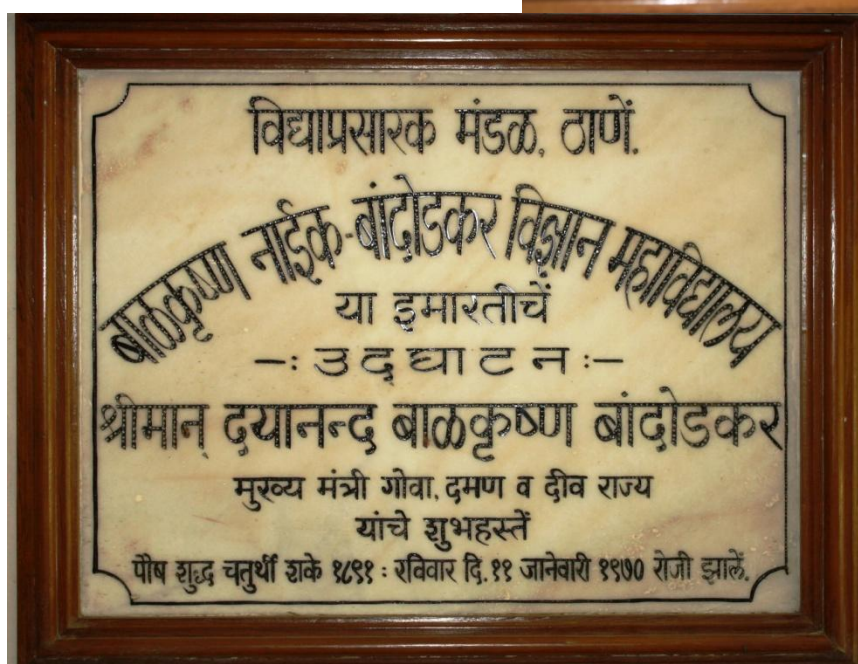 विद्याप्रसारक मंडळ, ठाणें.
बाळकृष्ण नाईक-बांदोडकर विज्ञान महाविद्यालय
या इमारतीचें
-: उद्घाटन :-
श्रीमान् दयानन्द बाळकृष्ण बांदोडकर
मुख्य मंत्री गोवा, दमण व दीव राज्य
यांचे शुभहस्तें
पौष शुद्ध चतुर्थी शके १८९१ : रविवार दि. ११ जानेवारी १९७० रोजी झालें.